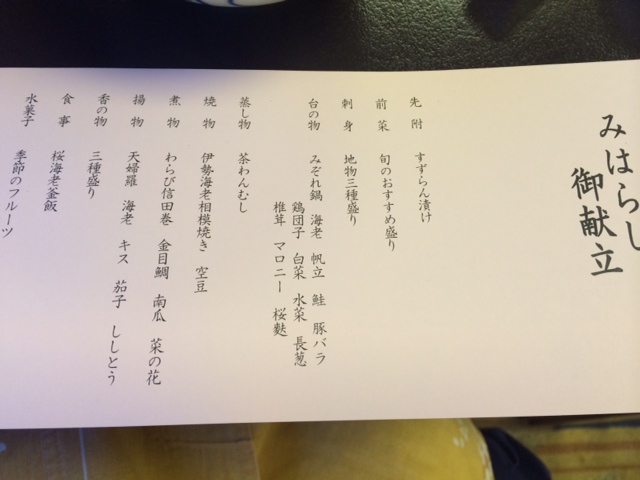 みはらし
御献立
先附 すずらん漬け
前菜 旬のおすすめ盛り
刺身 地物三種盛り
台の物 みぞれ鍋 海老 帆立 鮭 豚バラ
鶏団子 白菜 水菜 長葱
椎茸 マロニー 桜麩
蒸し物 茶わんむし
焼物 伊勢海老相模焼き 空豆
煮物 わらび信田巻 金目鯛 南瓜 菜の花
揚物 天婦羅 海老 キス 茄子 ししとう
香の物 三種盛り
食事 桜海老釜飯
水菓子 季節のフルーツ